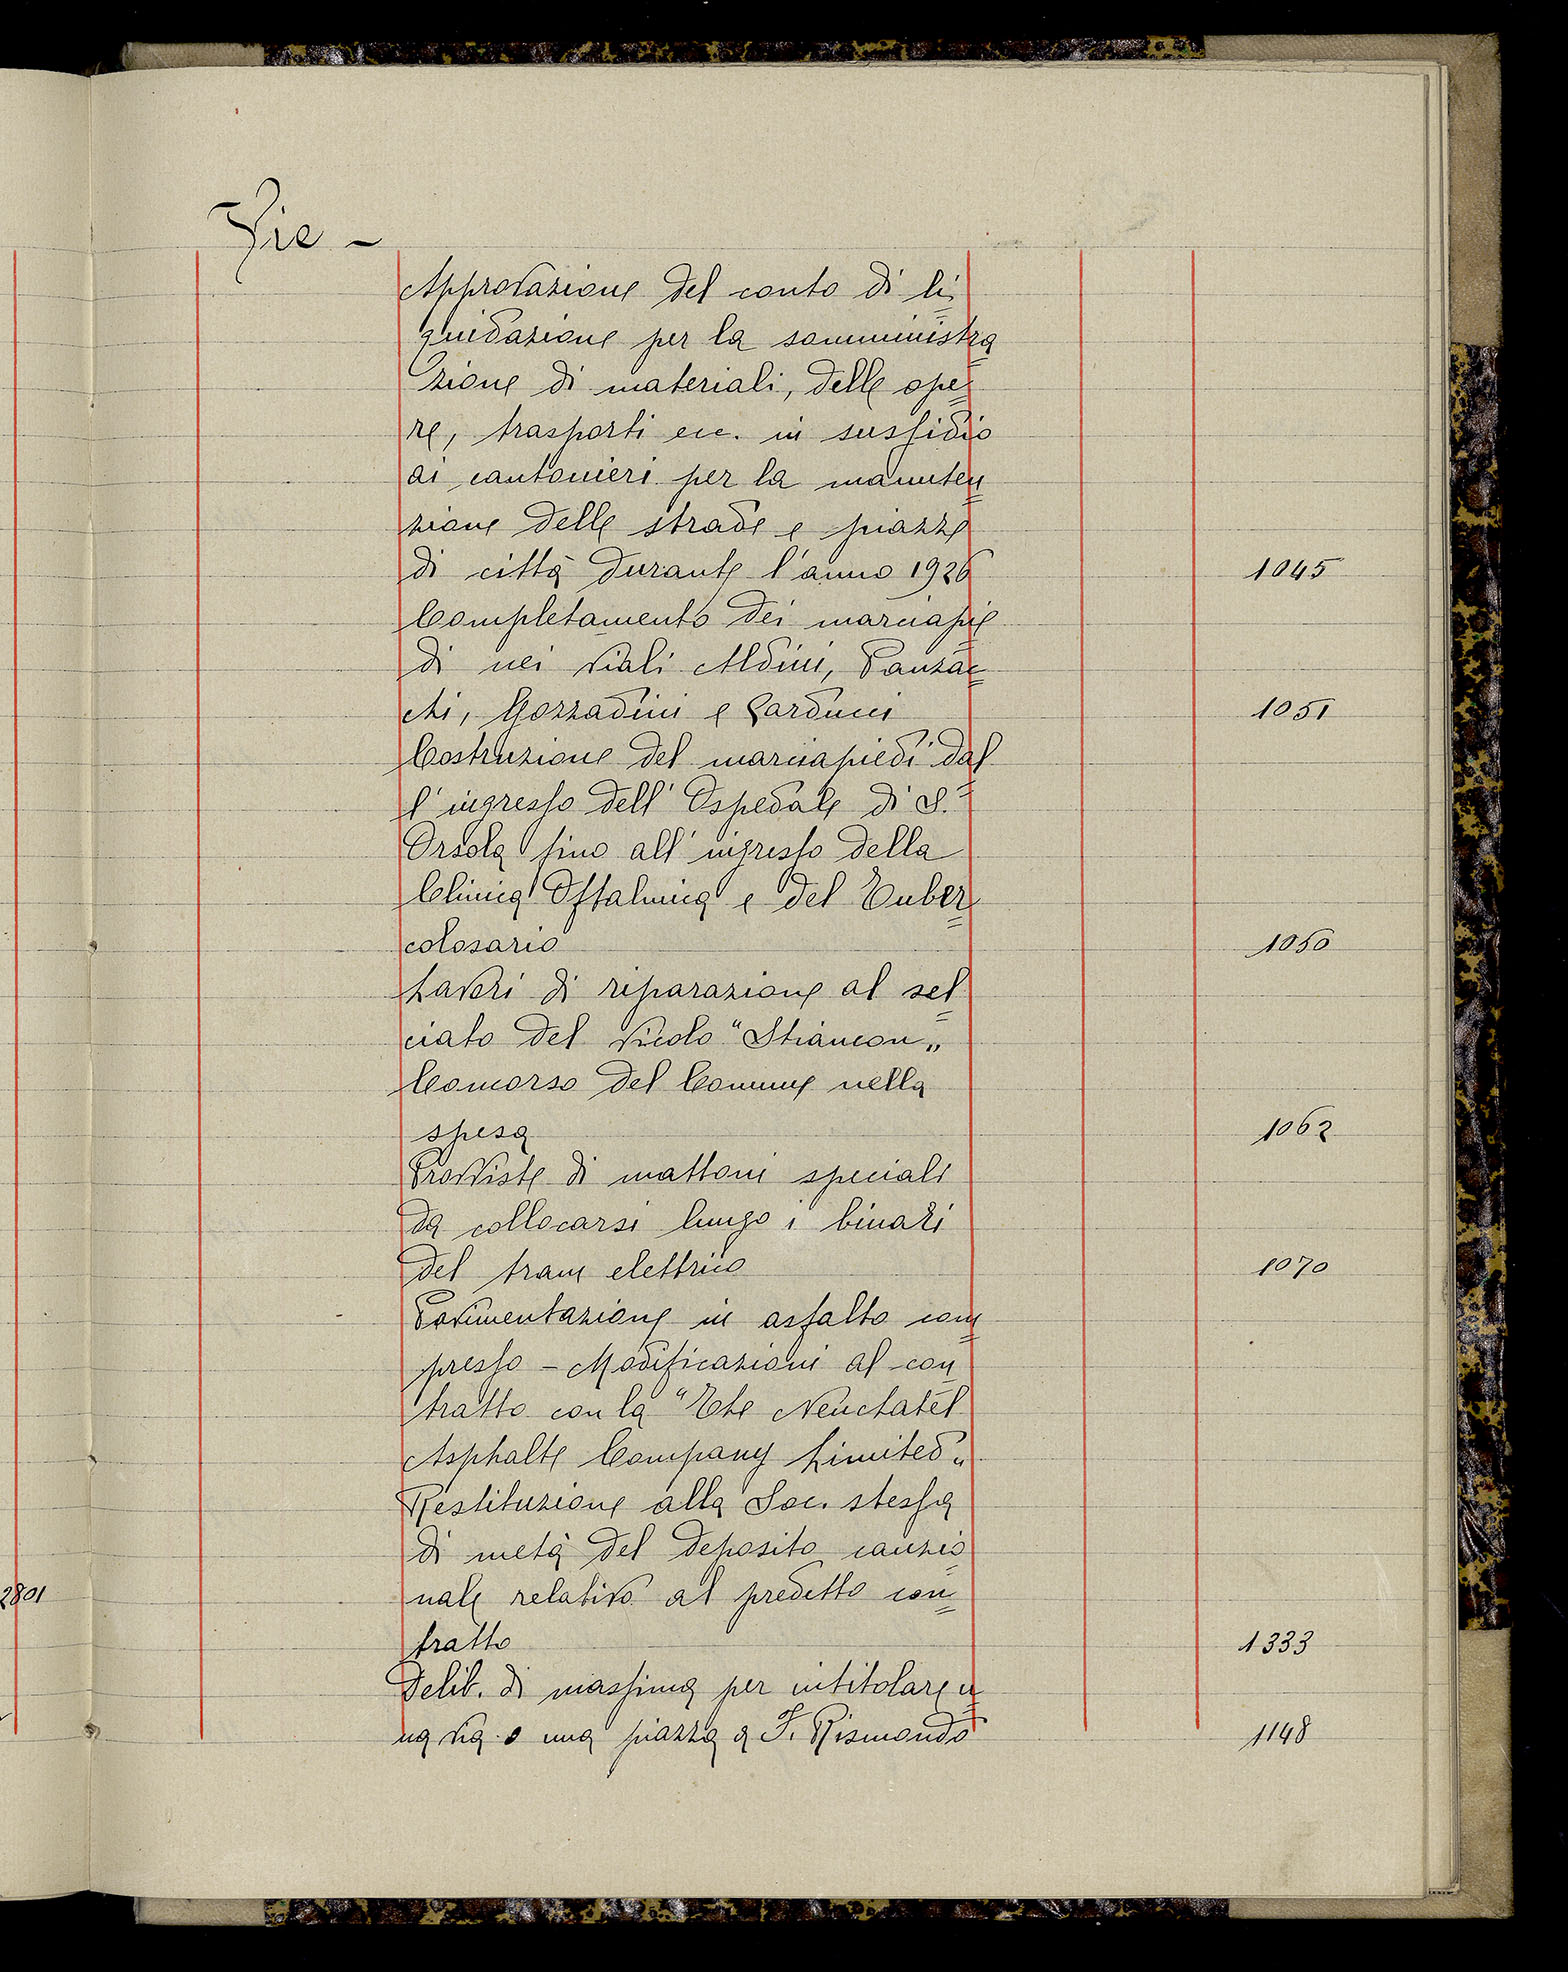 Vie -
Approvazione del conto di li=
quidazione per la somministra=
zione di materiali, delle ope=
re, trasporti ecc. in sussidio
ai cantonieri per la manuten=
zione delle strade e piazze
di città durante l'anno 1926 1045
Completamento dei marciapie=
di nei viali Aldini, Panzac=
chi, Gozzadini e Carducci 1051
Costruzione del marciapiedi dal=
l'ingresso dell'Ospedale di S.
Orsola fino all'ingresso della
Clinica Oftalmica e del Tuber=
colosario 1050
Lavori di riparazione al sel=
ciato del vicolo "Stiancon„
Concorso del Comune nella
spesa 1062
Provviste di mattoni speciali
da collocarsi lungo i binari
del tram elettrico 1070
Pavimentazione in asfalto com=
presso - Modificazioni al con=
tratto con la "The Neuchatel
Asphalte Company Limited„
Restituzione alla Soc. stessa
di metà del deposito cauzio
2801 nale relativo al predetto con=
tratto 1333
Delib. di massima per intitolare u=
na via o una piazza a F. Rismondo 1148